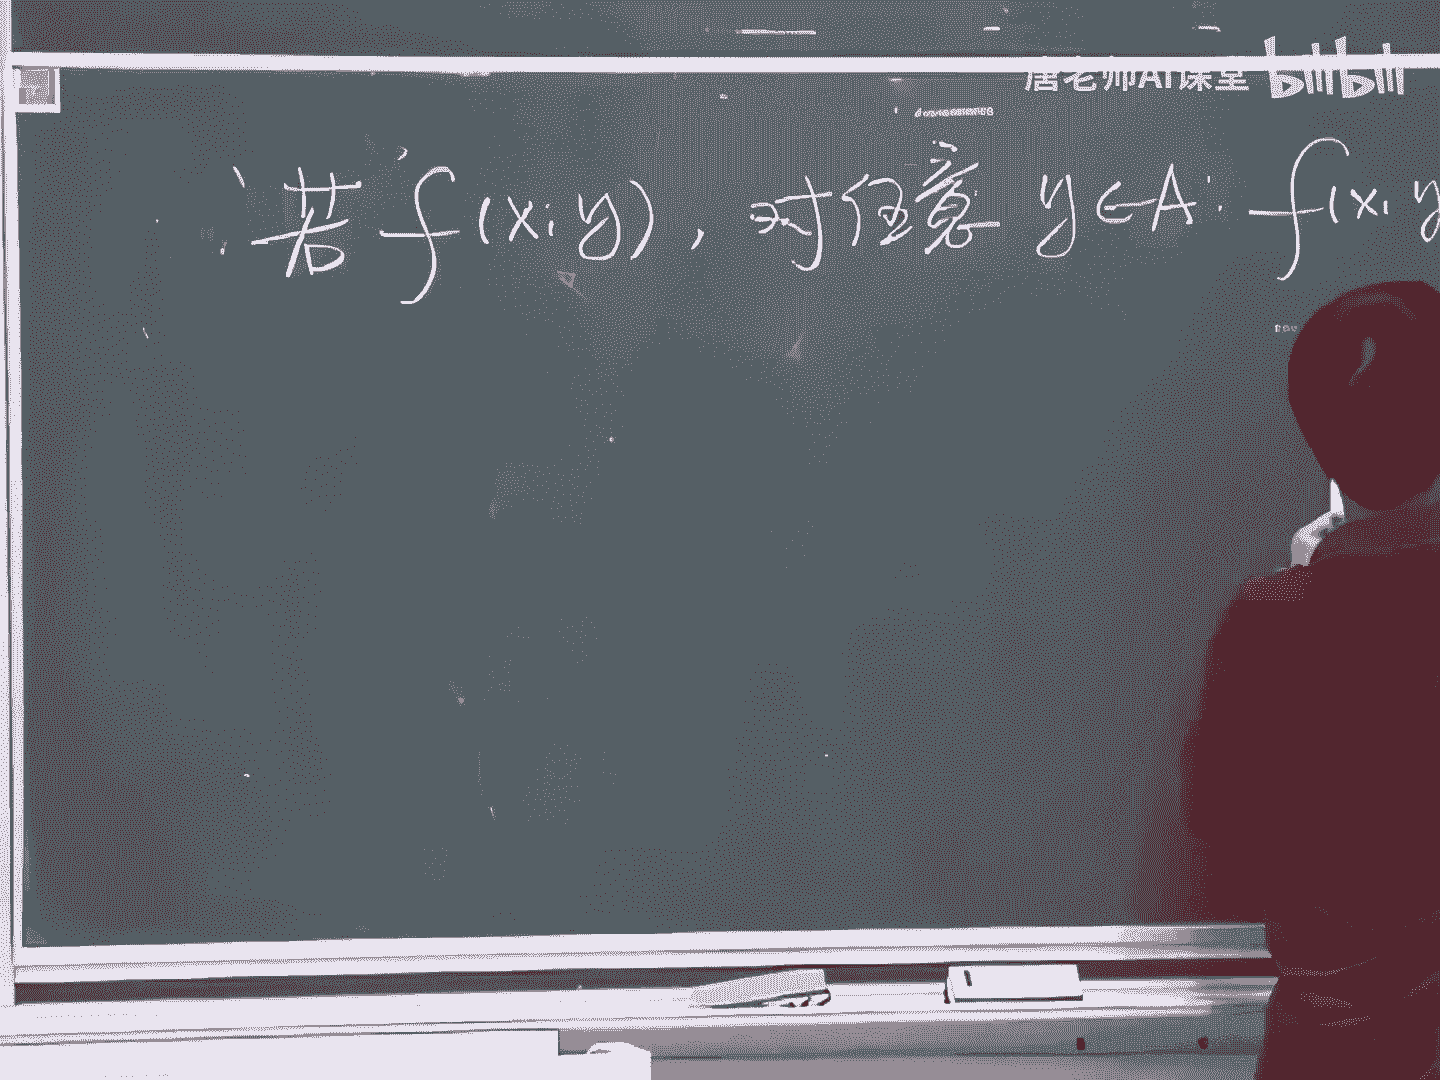 唐老师AI课堂 bilibili
若 f(x, y), 对任意 y∈A: f(x, y